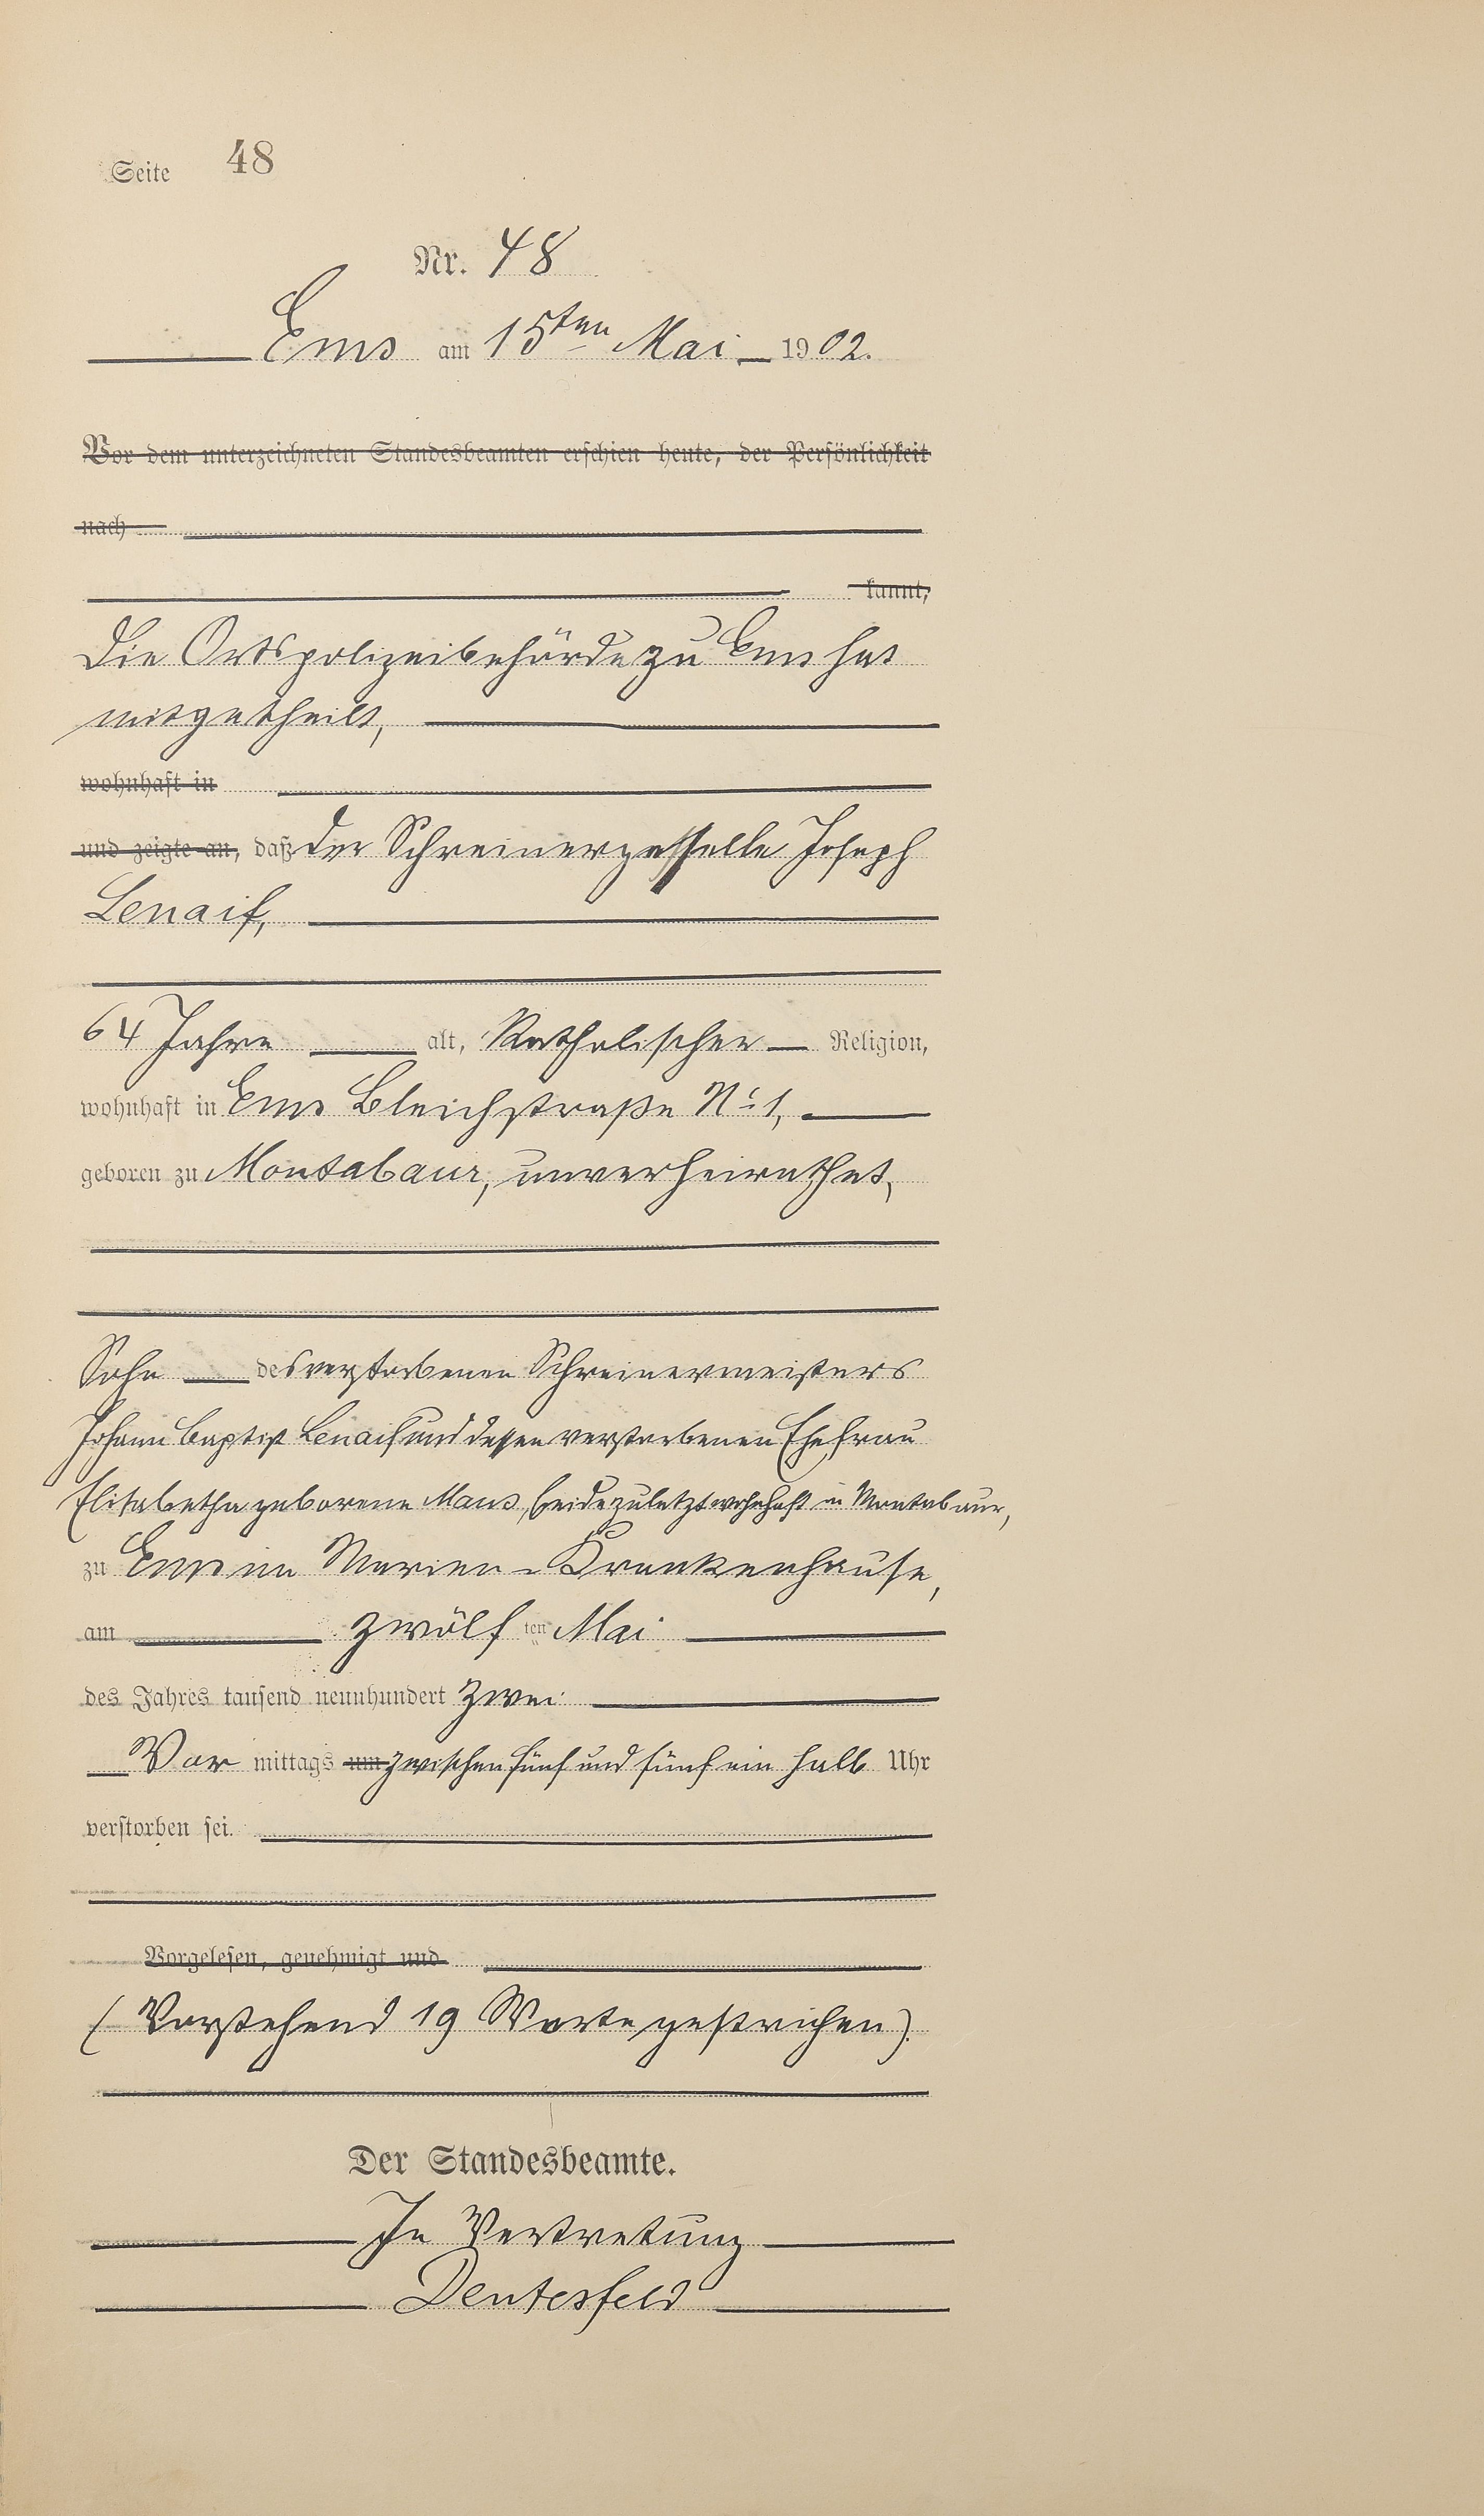 Seite 48
Nr. 48
Ems am 15ten Mai 1902.
Vor dem unterzeichneten Standesbeamten erschien heute, der Persönlichkeit
nach
kannt,
Die Ortspolizeibehörde zu Ems hat
mitgetheilt,
wohnhaft in
und zeigte an, daß der Schreinergesselle Joseph
Lenaif,
64 Jahre alt, Katholischer Religion,
wohnhaft in Ems Bleichstraße No 1,
geboren zu Montabaur, unverheirathet,
Sohn des verstorbenen Schreinermeisters
Johann Baptist Lenaif und dessen verstorbenen Ehefrau
Elisabetha geborene Maus, beide zuletzt wohnhaft in Montabaur,
zu Ems im Marien-Krankenhause,
am zwölf ten Mai
des Jahres tausend neunhundert zwei
Vor mittags um zwischen fünf und fünf ein halb Uhr
verstorben sei.
Vorgelesen, genehmigt und
(Vorstehend 19 Worte gestrichen).
Der Standesbeamte.
In Vertretung
Deutesfeld